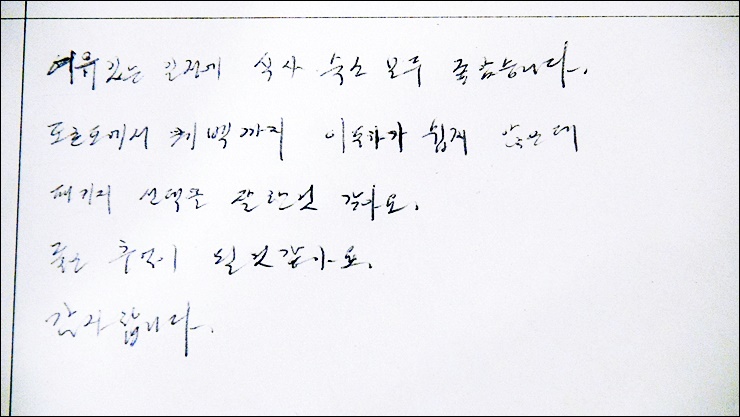 여유있는 일정에 식사 숙소 모두 좋았습니다.
토론토에서 퀘벡까지 이동하기가 쉽지 않은데
패키지 선택을 잘한것 같아요.
좋은 추억이 될것같아요.
감사합니다.